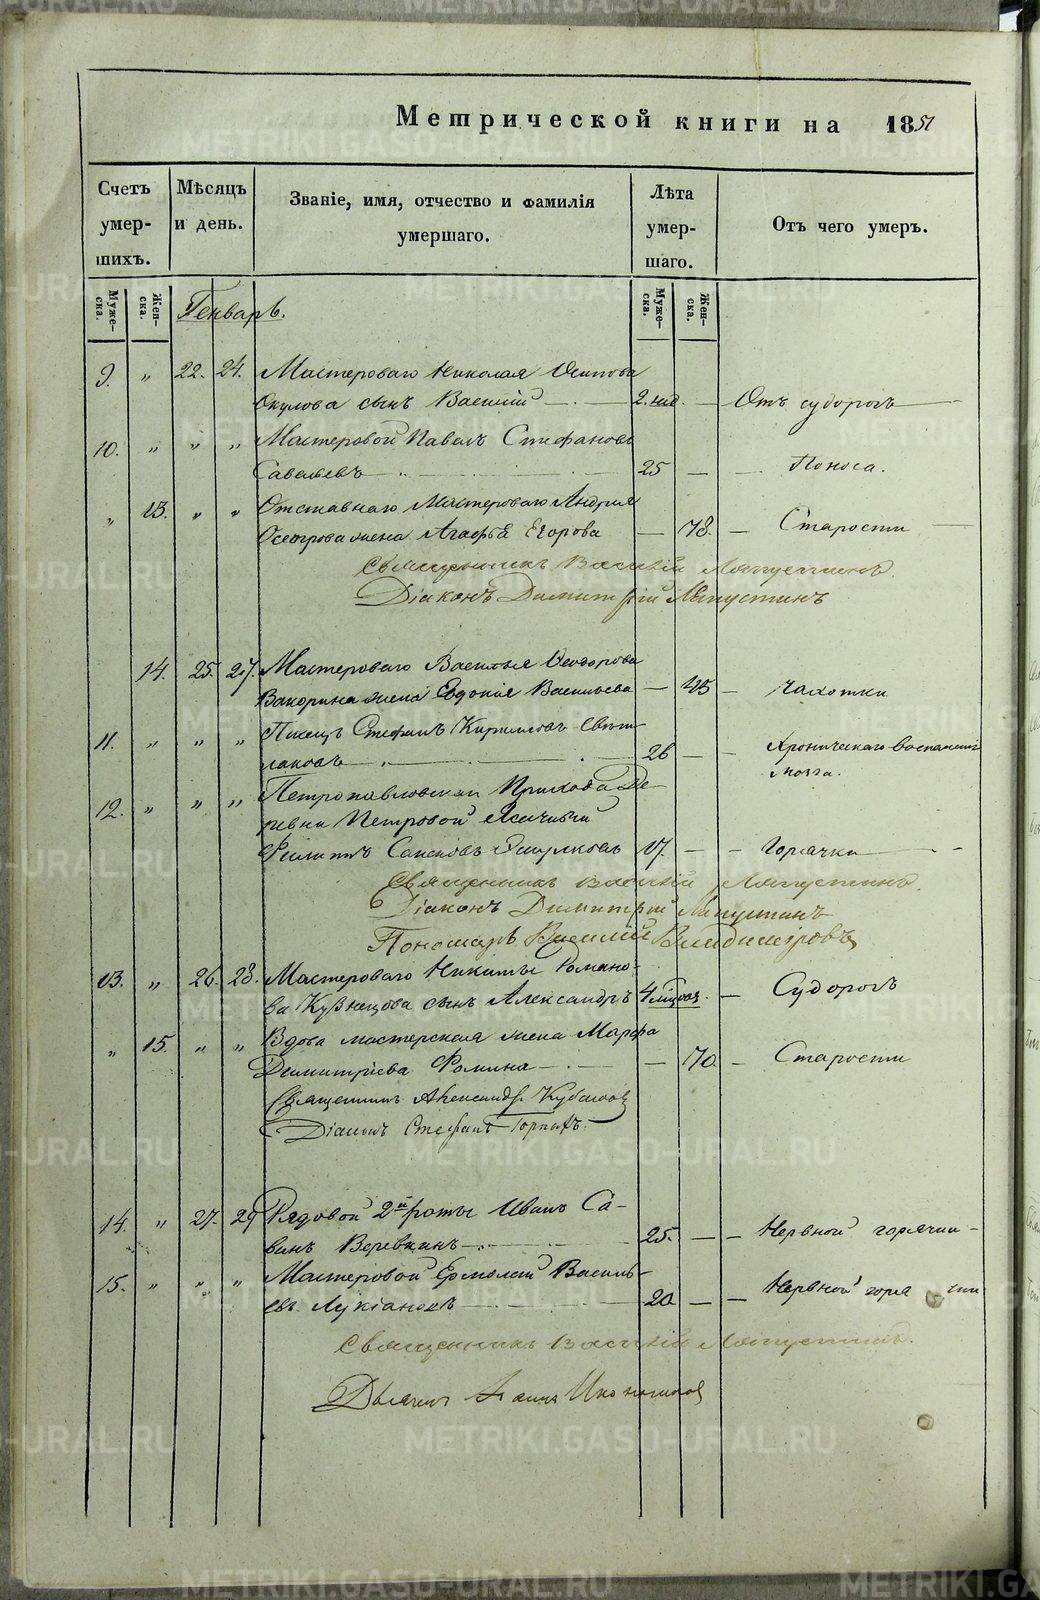 Метрической книги на 1851
Счетъ умер-шихъ. Мѣсяцъ и день. Званіе, имя, отчество и фамилія умершаго. Лѣта умер-шаго. Отъ чего умеръ.
Муже-ска. Жен-ска. Муже-ска. Жен-ска.
Генварь.
9. " 22. 24. Мастероваго Николая Осипова
Окулова сынъ Василій 2. нед. — Отъ судорогъ
10. " " " Мастеровой Павелъ Стефановъ
Савельевъ 25 — — Поноса.
" 13. " " Отставнаго Мастероваго Андрея
жена Агафья Егорова — 78. — Старости
Священникъ Василій Ляпустинъ.
Діаконъ Димитрій Ляпустинъ
14. 25. 27. Мастероваго Василья Ѳеодорова
Вакорина жена Евдокія Васильева — 45 — Чахотки
11. " " " Писецъ Стефанъ Кириловъ Свѣт-
лаковъ 26 — — Хроническаго воспаленія
мозга.
12. " " " Петропавловскаго Прихода Де-
ревни Петровой
Филипъ 17. — — Горячки
Священникъ Василій Ляпустинъ.
Діаконъ Димитрій Ляпустинъ
Пономарь Василій Владиміровъ
13. " 26. 28. Мастероваго Никиты Романо-
ва Кузнецова сынъ Александръ 4 мѣсяц. — Судорогъ
" 15. " " Вдова мастерская жена Марфа
Димитріева Фомина — 70 — Старости
Священникъ Александръ
Діаконъ Стефанъ
14. " 27. 29 Рядовой 2й роты Иванъ Са-
винъ Веревкинъ 25. — — Нервной горячки
15. " " " Мастеровой Ермолай Василь-
евъ Лукіановъ 20 — — Нервной горячки
Священникъ Василій Ляпустинъ.
Дьячекъ Иконниковъ
METRIKI.GASO-URAL.RU